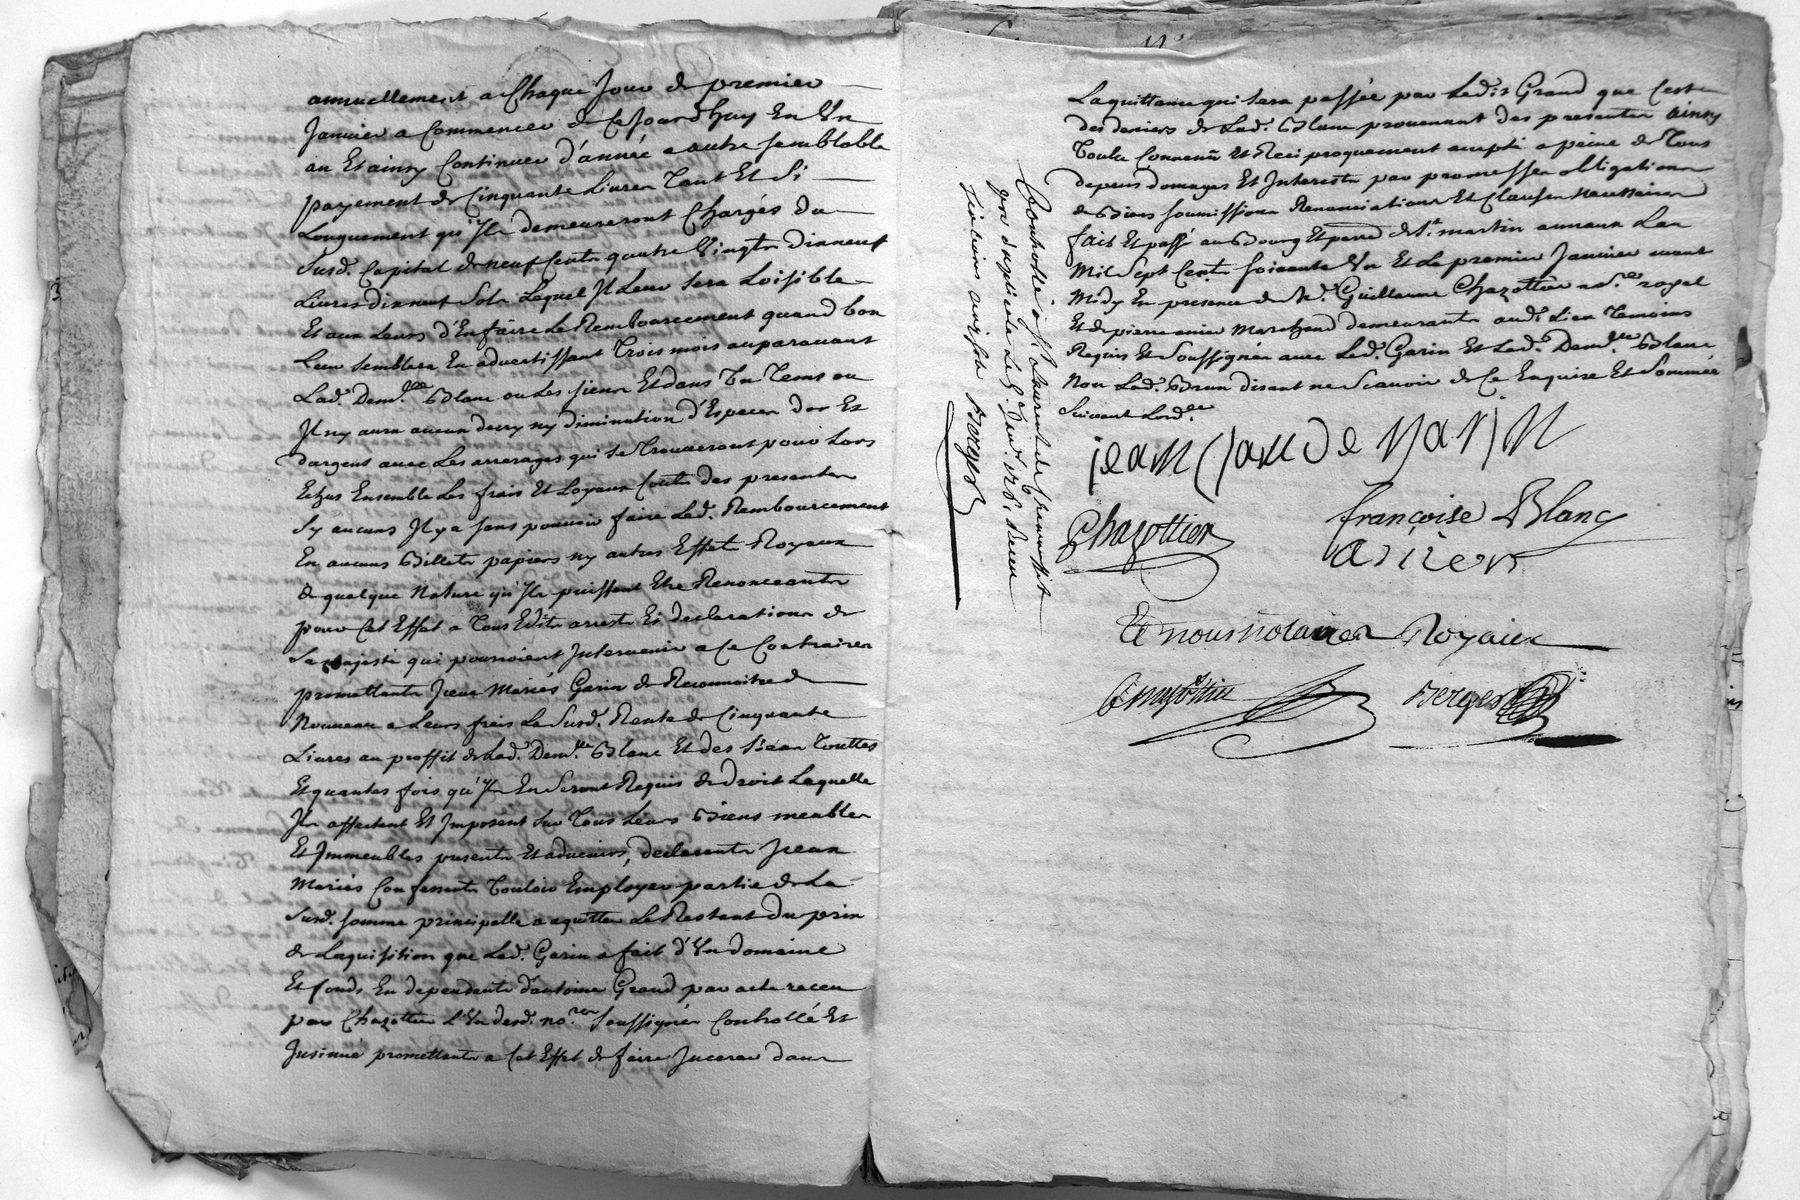 annuellement a Chaque Jour de premier
Janvier a Commencer de Ce Jourdhuy En Un
an Et ainsy Continuer d'année a autre semblable
payement de Cinquante Livres Tant Et Si
Longuement qu'Ils demeureront Chargés du
Susd. Capital de neuf Cents quatre Vingts dixneuf
Livres dixneuf Sols Lequel Il Leur sera Loisible
Et aux Leurs d'En faire Le Remboursement quand bon
Leur semblera En advertissant Trois mois auparavant
Lad. Dem.lle Blanc ou Les siens Et dans Un Tems ou
Il ny aura aucun decry ny diminution d'Especes dor Et
dargent avec Les arrerages qui se Trouveront pour Lors
Echus Ensemble Les frais Et Loyaux Couts des presentes
Sy aucuns Il y a sans pouvoir faire Led. Remboursement
En aucuns Billets papiers ny autres Effets Royaux
de quelque Nature qu'Ils puissent Etre Renonceants
pour Cet Effet a Tous Edits arrests Et declarations de
Sa Majesté qui pourroient Intervenir a Ce Contraires
promettants Iceux Mariés Garin de Reconnoitre de
Nouveau a Leurs frais La Susd. Rente de Cinquante
Livres au proffit de Lad. Dem.lle Blanc Et des Siens Touttes
Et quantes fois qu'Ils En Seront Requis de Droit Laquelle
Ils affectent Et Imposent Sur Tous Leurs Biens meubles
Et Immeubles presents Et advenirs, declarants Iceux
Mariés Conjoints Vouloir Employer partie de La
Susd. somme principalle a aquitter Le Restant du prix
de Laquisition que Led. Garin a fait d'Un Domaine
Et fonds En dependants d'antoine Grand par acte receu
par Chazottier L'Un desd. no.res Soussignés Controllé Et
Insinué promettants a Cet Effet de faire Inserer dans
Laquittance qui sera passée par Led. Grand que Cest
des deniers de Lad. Blanc provenant des presentes ainsy
Voulu Convenu Et Reciproquement accepté a peine de Tous
depens domages Et Interests par promesses obligations
de Biens soumissions Renonciations Et Clauses necessaires
fait Et passé au Bourg Et parr. de St. martin annaux Lan
Mil Sept Cents soixante Un Et Le premier Janvier avant
Midy En presence de Me. Guillaume Chazottier no.re royal
Et de pierre Marchand demeurants aud. Lieu Temoins
Requis Et Soussignés avec Led. Garin Et Lad. Dem.lle Blanc
Non Lad. Brun disant ne Scavoir de Ce Enquise Et Sommée
Suivant Lord.ce
Controllé a St. Laurent de
Berger
Chazottier
françoise Blanc
Et nous notaires Royaux
Berger